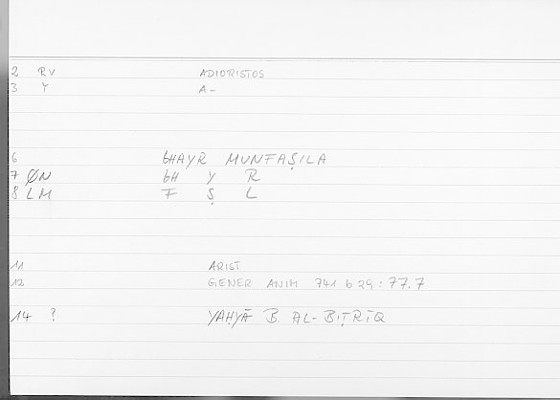 2 RV ADIORISTOS
3 Y A-
6 GHAYR MUNFAṢILA
7 ØN GH Y R
8 LM F Ṣ L
11 ARIST
12 GENER ANIM 741 b 29 : 77.7
14 ? YAḤYĀ B AL-BIṬRĪQ